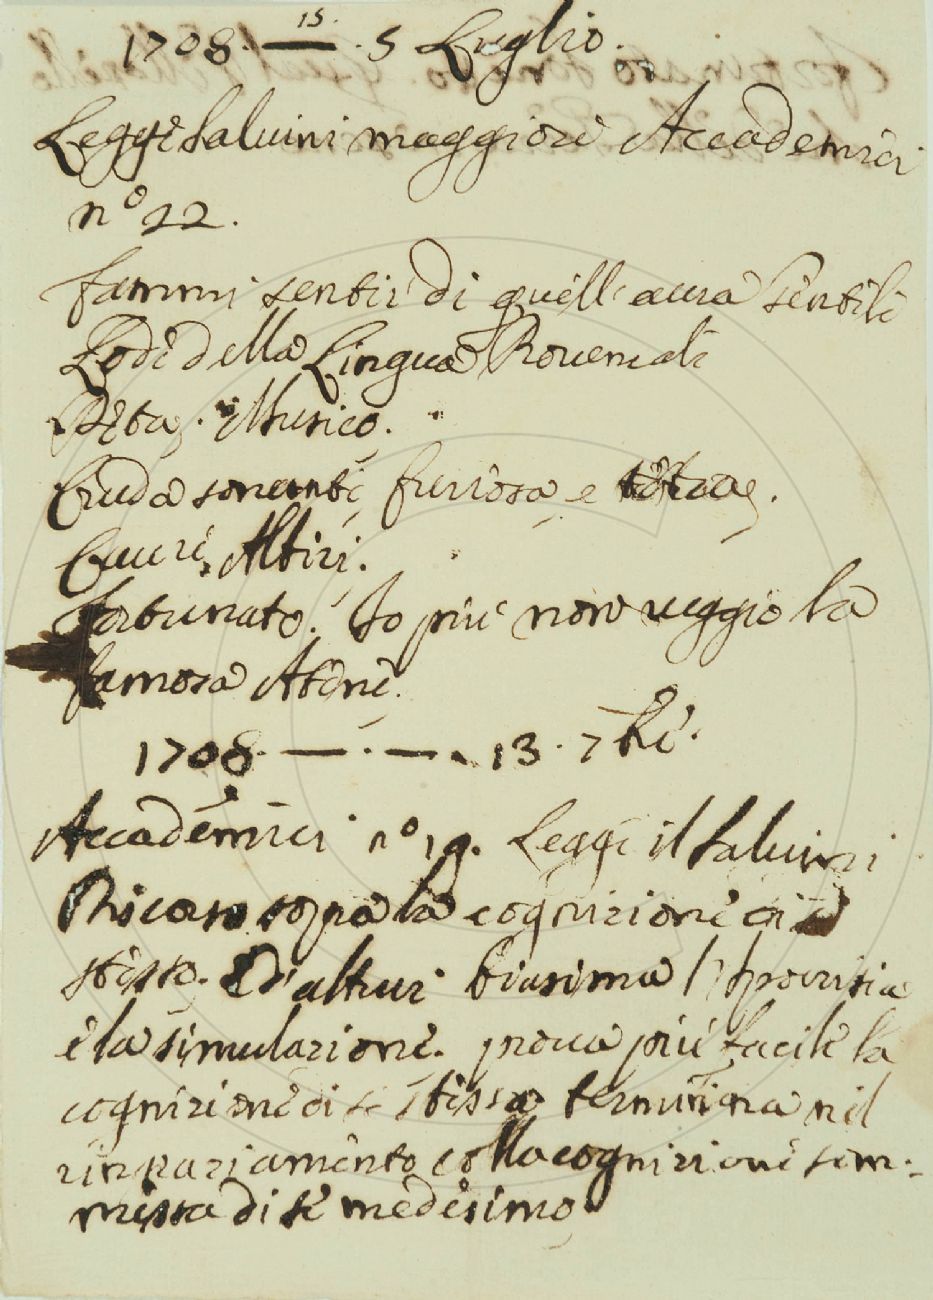 1708. — 15. 5 Luglio.
Legge Salvini maggiore Accademici
n.o 22.
fammi sentir di quell' aura gentile
Lode della Lingua Provenzale
Musico.
Cruda sonante, furiosa e
Cuore, Altiri.
Fortunato. Io più non veggio la
famosa Atene.
1708. — . — . 13. 7bre.
Accademici n.o 19. Legge il Salvini
sopra la cognizione di se
stesso. Ed' altrui biasima l'Ipocrisia
e la simulazione. prova più facile la
cognizione di se stesso termina nel
ringraziamento colla cognizione som-
messa di se medesimo